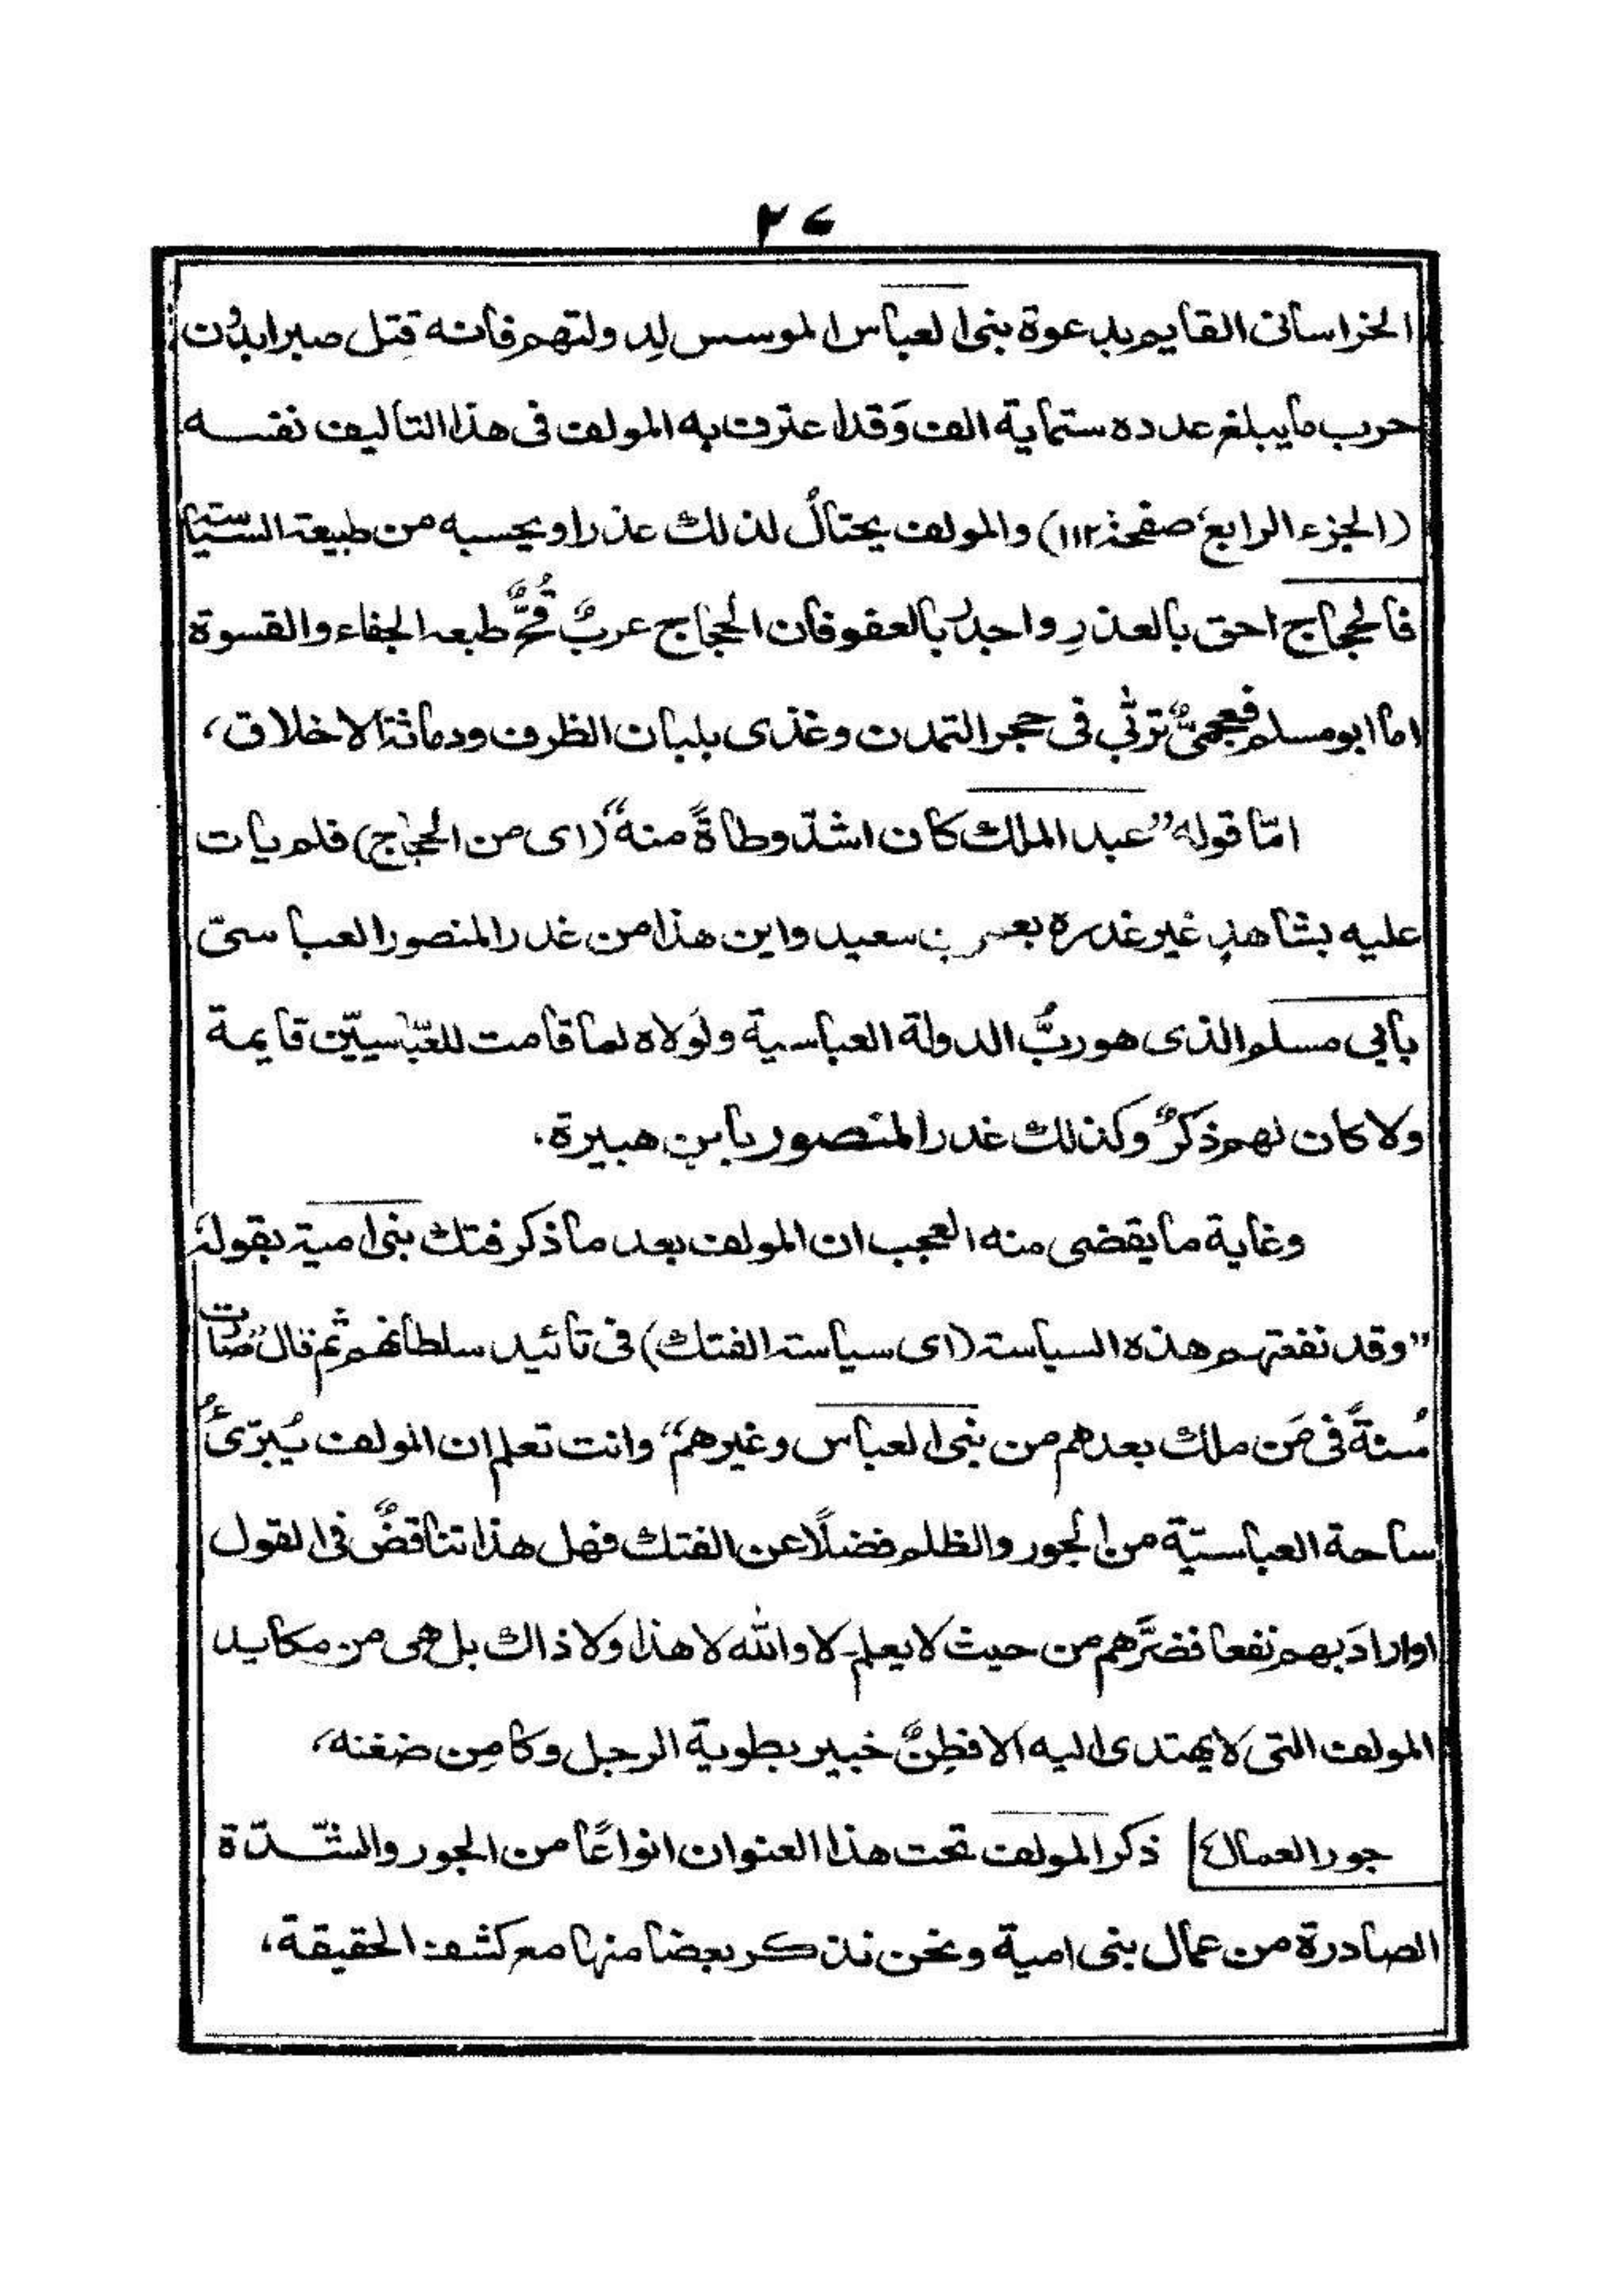 ٢٧
الخراسانی القایم بدعوة بنی العباس الموسس لدولتهم فانه قتل صبرا بدون
حرب ما یبلغ عدده ستمایة الف وَقد اعترف به المولف فی هذا التالیف نفسه
(الجزء الرابع، صفحة ١١٢) والمولف یحتالُ لذلك عذرا و یحسبه من طبیعة السیاسة
فالحجاج احق بالعذرِ واجدر بالعفو فان الحجاج عربیٌ قُحٌّ طبعه الجفاء والقسوة
اما ابو مسلم فعجمیٌّ تربّٰی فی حجر التمدن وغذی بلبان الظرف ودماثة الاخلاق،
امّا قوله ”عبد الملك كان اشدّ وطاةً منه“ (ای من الحجاج) فلم یات
علیه بشاهدٍ غیر غدره بعمرو بن سعید واین هذا من غدر المنصور العباسیّ
بابی مسلم الذی هو ربُّ الدولة العباسیة ولَولاه لما قامت للعبّاسیّین قایمة
ولا كان لهم ذكرٌ وكذلك غدر المنصور بابن هبیرة.
وغایة ما یقضی منه العجب ان المولف بعد ما ذكر فتك بنی امیة بقوله
”وقد نفعتهم هذه السیاسة (ای سیاسة الفتك) فی تائید سلطانهم ثم قال ”صارت
سُنةً فی مَن ملك بعدهم من بنی العباس وغیرهم“ وانت تعلم ان المولف یُبرّیٔ
ساحة العباسیّة من الجور والظلم فضلًا عن الفتك فهل هذا تناقضٌ فی القول
او ارادَ بهم نفعا فضرَّهم من حیث لا یعلم۔ لا والله لا هذا ولا ذاك بل هی من مكاید
المولف التی لا یهتدی الیه الا فطِنٌ خبیر بطویة الرجل وكامِن ضغنه،
جور العمال٤ ذكر المولف تحت هذا العنوان انواعًا من الجور والشّدّة
الصادرة من عمال بنی امیة ونحن نذكر بعضا منها مع كشف الحقیقة،